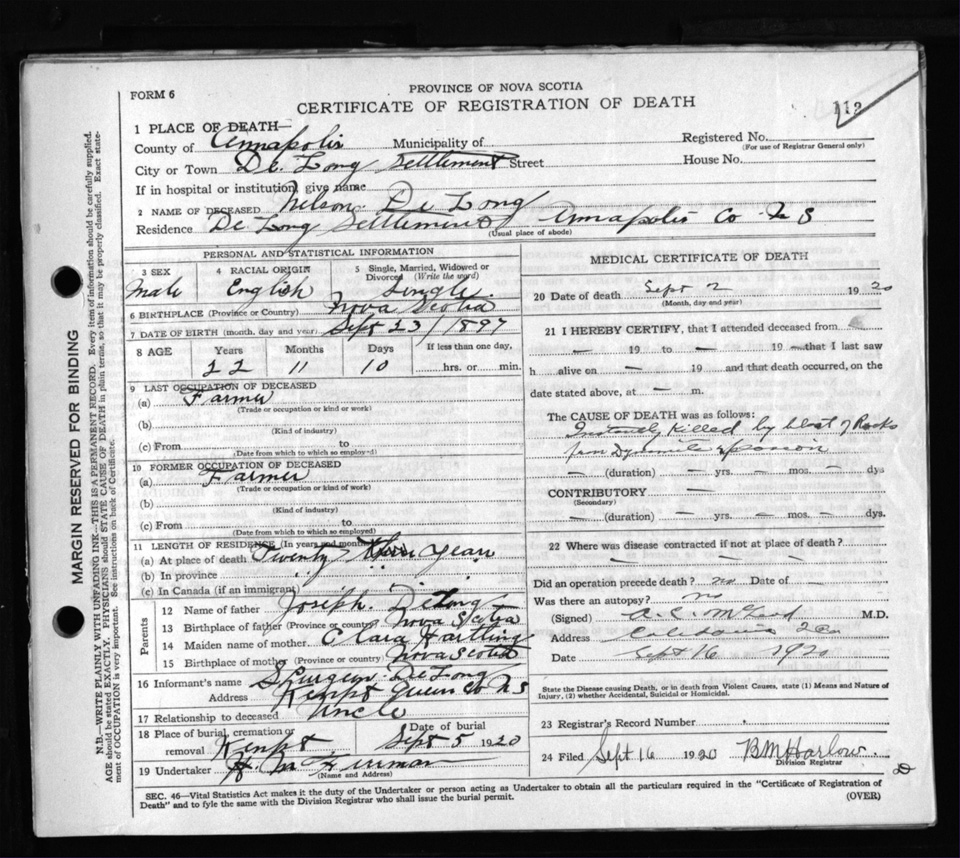 PROVINCE OF NOVA SCOTIA
FORM 6
CERTIFICATE OF REGISTRATION OF DEATH
112
1 PLACE OF DEATH—
County of Annapolis Municipality of
Registered No.
(For use of Registrar General only)
City or Town De Long Settlement Street
House No.
If in hospital or institution, give name
2 NAME OF DECEASED Nelson De Long
Residence De Long Settlement Annapolis Co N S
(Usual place of abode)
PERSONAL AND STATISTICAL INFORMATION
3 SEX
Male
4 RACIAL ORIGIN
English
5 Single, Married, Widowed or
Divorced (Write the word)
Single
6 BIRTHPLACE (Province or Country) Nova Scotia
7 DATE OF BIRTH (month, day and year) Sept 23/1897
8 AGE Years Months Days If less than one day,
22 11 10 hrs. or min.
9 LAST OCCUPATION OF DECEASED
(a) Farmer
(Trade or occupation or kind or work)
(b)
(Kind of industry)
(c) From to
(Date from which to which so employed)
10 FORMER OCCUPATION OF DECEASED
(a) Farmer
(Trade or occupation or kind or work)
(b)
(Kind of industry)
(c) From to
(Date from which to which so employed)
11 LENGTH OF RESIDENCE (In years and months)
(a) At place of death Twenty Three years
(b) In province " " "
(c) In Canada (if an immigrant)
Parents
12 Name of father Joseph DeLong
13 Birthplace of father (Province or country) Nova Scotia
14 Maiden name of mother Clara Hartling
15 Birthplace of mother (Province or country) Nova Scotia
16 Informant's name Spurgeon DeLong
Address Kempt Queens Co N S
17 Relationship to deceased Uncle
18 Place of burial, cremation or
removal Kempt
Date of burial
Sept 5 1920
19 Undertaker H. M.
(Name and Address)
MEDICAL CERTIFICATE OF DEATH
20 Date of death Sept 2 1920
(Month, day and year)
21 I HEREBY CERTIFY, that I attended deceased from
— 19 to — 19 — that I last saw
h alive on — 19 and that death occurred, on the
date stated above, at — m.
The CAUSE OF DEATH was as follows:
Instantly Killed by blast of Rocks
from Dynamite
— (duration) — yrs. — mos. — dys
CONTRIBUTORY —
(Secondary)
— (duration) — yrs. — mos. — dys.
22 Where was disease contracted if not at place of death?
— — —
Did an operation precede death? no Date of —
Was there an autopsy? no
(Signed) M.D.
Address Caledonia
Date Sept 16 1920
State the Disease causing Death, or in death from Violent Causes, state (1) Means and Nature of
Injury, (2) whether Accidental, Suicidal or Homicidal.
23 Registrar's Record Number
24 Filed Sept 16 1920 B M Harlow
Division Registrar
SEC. 46—Vital Statistics Act makes it the duty of the Undertaker or person acting as Undertaker to obtain all the particulars required in the "Certificate of Registration of
Death" and to fyle the same with the Division Registrar who shall issue the burial permit. (OVER)
MARGIN RESERVED FOR BINDING
N.B.—WRITE PLAINLY WITH UNFADING INK—THIS IS A PERMANENT RECORD. Every item of information should be carefully supplied.
AGE should be stated EXACTLY. PHYSICIANS should STATE CAUSE OF DEATH in plain terms, so that it may be properly classified. Exact state-
ment of OCCUPATION is very important. See instructions on back of Certificate.